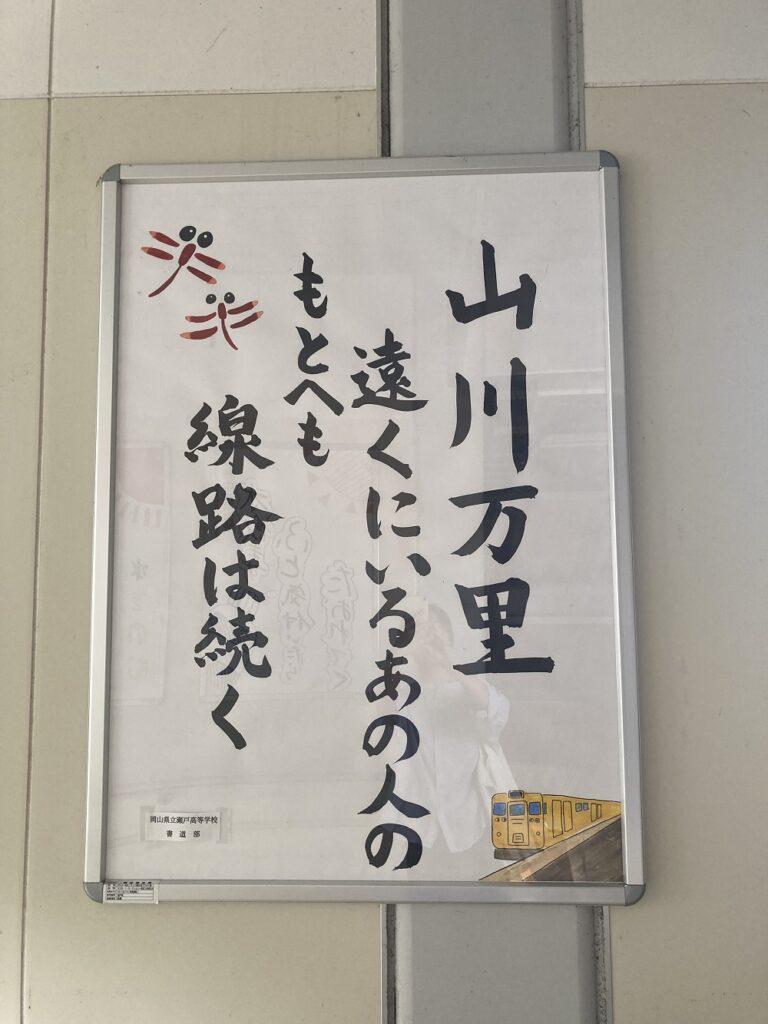 山川万里
遠くにいるあの人の
もとへも
線路は続く
岡山県立瀬戸高等学校
書道部